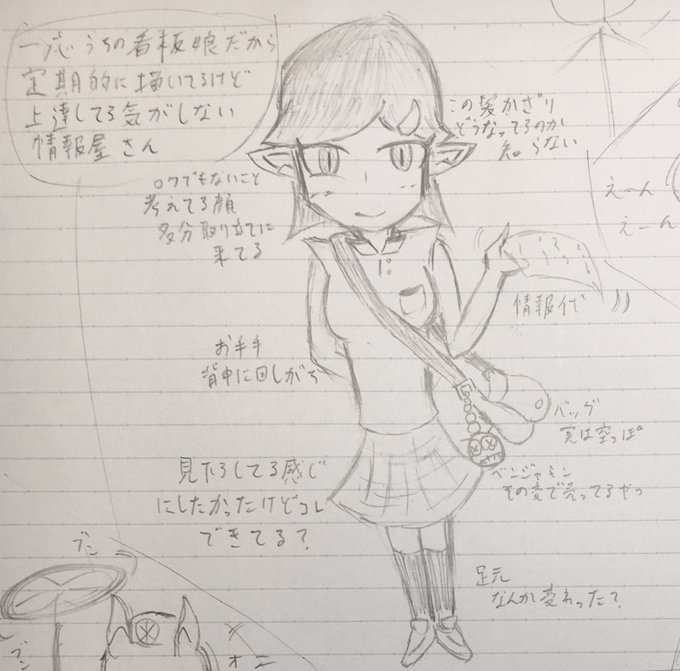 一応うちの看板娘だから
定期的に描いてるけど
上達してる気がしない
情報屋さん
この髪かざり
どうなってるのか
知らない
ロクでもないこと
考えてる顔
多分取り立てに
来てる
えーん
えーん
情報代
お手手
背中に回しがち
バッグ
実は空っぽ
ベンジャミン
その売で売ってるやつ
見下ろしてる感じ
にしたかったけどコレ
できてる?
足元
なんか変わった?
ブン
ブン
オニ